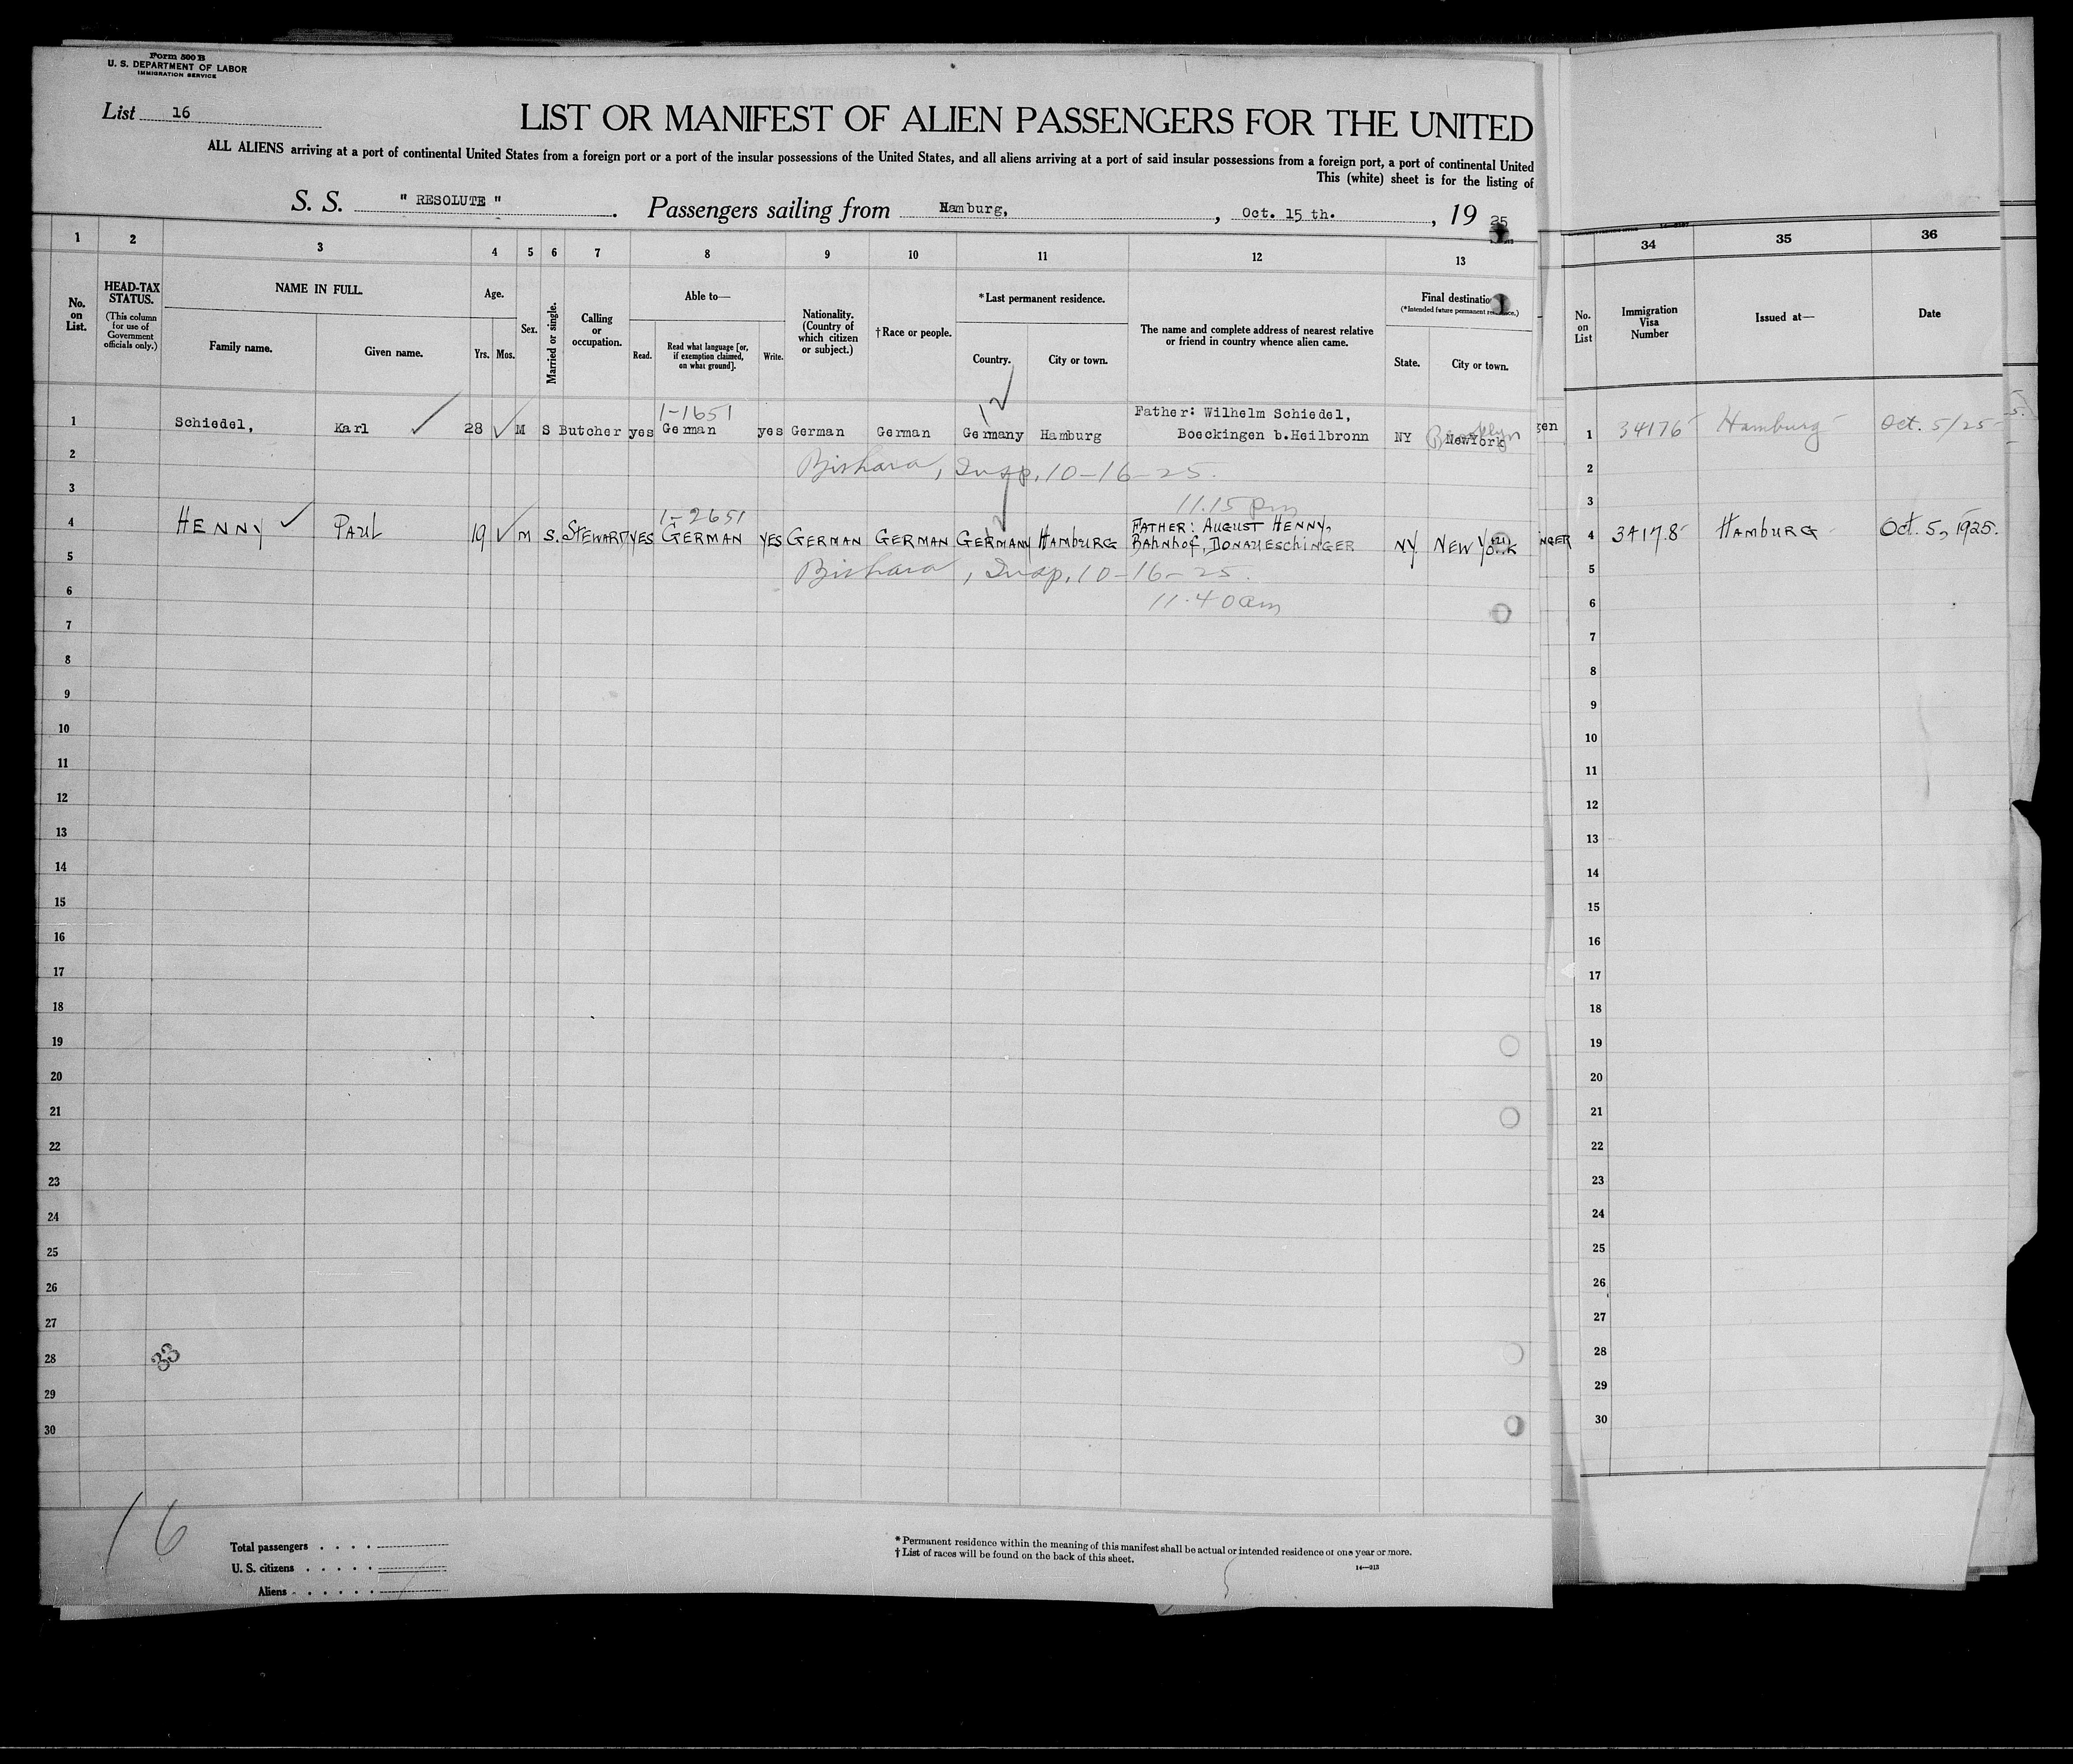 Form 500 B
U. S. DEPARTMENT OF LABOR
IMMIGRATION SERVICE
List 16
LIST OR MANIFEST OF ALIEN PASSENGERS FOR THE UNITED
ALL ALIENS arriving at a port of continental United States from a foreign port or a port of the insular possessions of the United States, and all aliens arriving at a port of said insular possessions from a foreign port, a port of continental United
This (white) sheet is for the listing of
S. S. " RESOLUTE " . Passengers sailing from Hamburg, , Oct. 15 th. , 19 25
1 2 3 4 5 6 7 8 9 10 11 12 13
No. on List.
HEAD-TAX STATUS.
(This column for use of Government officials only.)
NAME IN FULL.
Family name. Given name.
Age.
Yrs. Mos.
Sex.
Married or single.
Calling or occupation.
Able to—
Read. Read what language [or, if exemption claimed, on what ground]. Write.
Nationality. (Country of which citizen or subject.)
†Race or people.
*Last permanent residence.
Country. City or town.
The name and complete address of nearest relative or friend in country whence alien came.
Final destination
(*Intended future permanent residence.)
State. City or town.
34 35 36
No. on List
Immigration Visa Number
Issued at—
Date
1-1651
Father: Wilhelm Schiedel,
1 Schiedel, Karl 28 M S Butcher yes German yes German German Germany Hamburg Boeckingen b.Heilbronn NY NewYork Brooklyn
gen 1 34176 Hamburg Oct. 5/25
2 Bishara, Insp, 10-16-25.
2
3 11.15 pm
3
1-2651
FATHER: AUGUST HENNY,
4 HENNY PAUL 19 M S. STEWARD YES GERMAN YES GERMAN GERMAN GERMANY HAMBURG BAHNHOF, DONAUESCHINGER NY NEW YORK
NGER 4 34178 HAMBURG Oct. 5, 1925.
5 Bishara, Insp, 10-16-25.
5
6 11.40am
6
7 7
8 8
9 9
10 10
11 11
12 12
13 13
14 14
15 15
16 16
17 17
18 18
19 19
20 20
21 21
22 22
23 23
24 24
25 25
26 26
27 27
28 33 28
29 29
30 30
16
Total passengers . . . .
U. S. citizens . . . . .
Aliens . . . . . .
*Permanent residence within the meaning of this manifest shall be actual or intended residence of one year or more.
†List of races will be found on the back of this sheet.
14—213